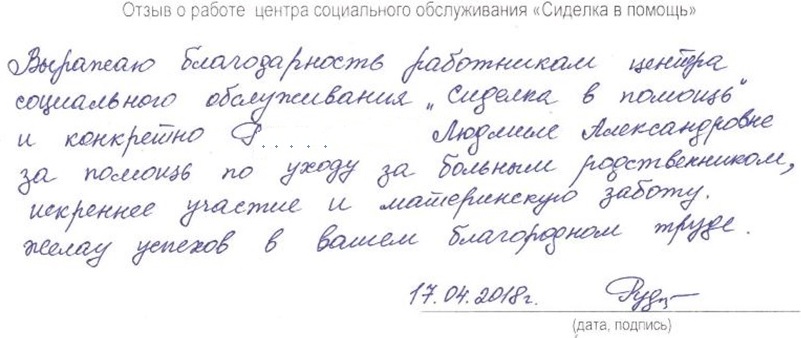 Отзыв о работе центра социального обслуживания «Сиделка в помощь»
Выражаю благодарность работникам центра
социального обслуживания „Сиделка в помощь"
и конкретно Р..... Людмиле Александровне
за помощь по уходу за больным родственником,
искреннее участие и материнскую заботу.
Желаю успехов в вашем благородном труде.
17.04.2018г.
(дата, подпись)